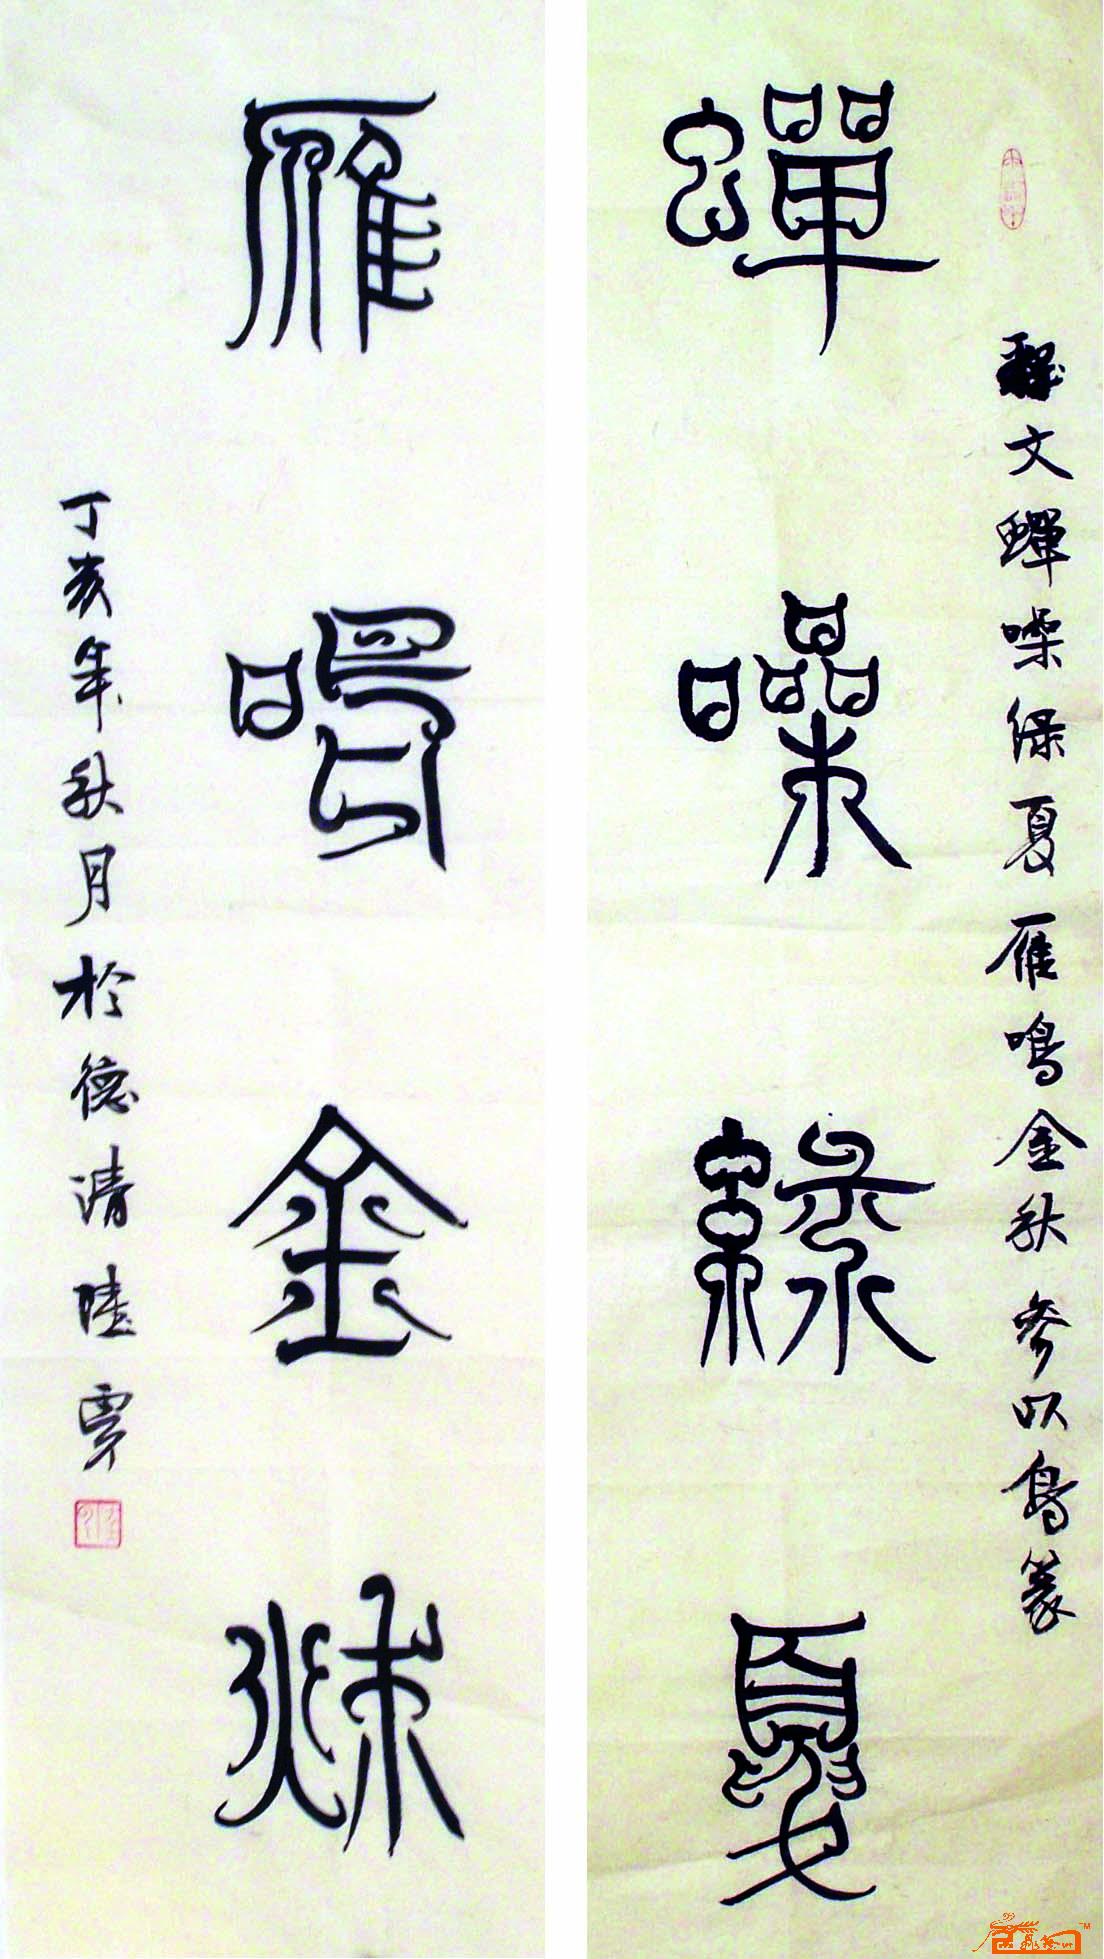 蟬噪綠夏
釋文蟬噪綠夏雁鳴金秋參以鳥篆
雁鳴金秋
丁亥年秋月於德清陸賈